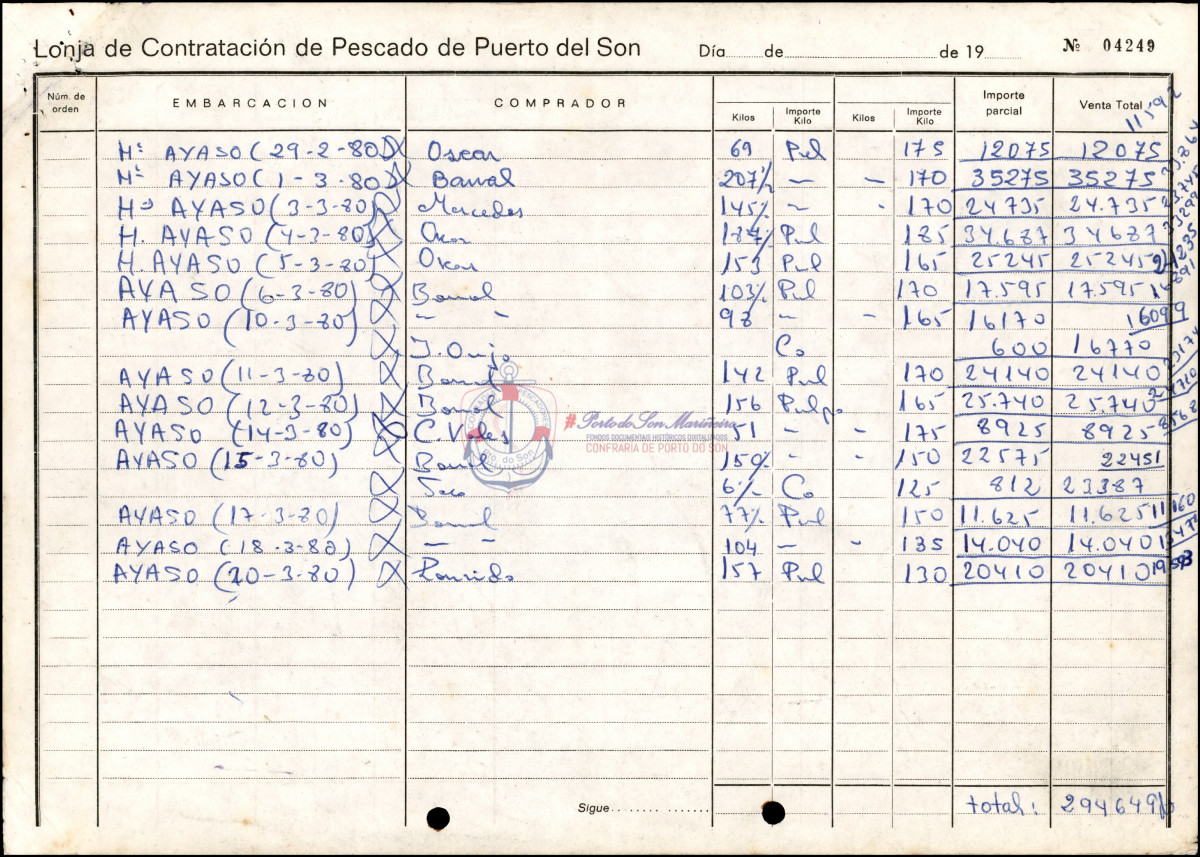 Lonja de Contratación de Pescado de Puerto del Son Día de de 19 Nº 04249
Núm. de orden EMBARCACION COMPRADOR Kilos Importe Kilo Kilos Importe Kilo Importe parcial Venta Total
11592
Mª AYASO (29-2-80) Oscar 69 Pul 175 12075 12075
Mª AYASO (1-3-80) Barral 207½ — — 170 35275 35275
AYASO (3-3-80) Mercedes 145½ — - 170 24735 24.735
H. AYASO (4-3-80) 187½ Pul 185 34.687 34687
H. AYASO (5-3-80) 153 Pul 165 25245 25245
AYASO (6-3-80) Barral 103½ Pul 170 17.595 17.595
AYASO (10-3-80) — - 98 — - 165 16170 16099
Co 600 16770
AYASO (11-3-80) Barral 142 Pul 170 24140 24140
AYASO (12-3-80) Barral 156 Pulpo 165 25.740 25.740
AYASO (14-3-80) C. Vales 51 — - 175 8925 8925
AYASO (15-3-80) Barral 150½ - - 150 22575 22451
Seco 6½ Co 125 812 23387
AYASO (17-3-80) Barral 77½ Pul 150 11.625 11.625 11160
AYASO (18-3-80) — - 104 — - 135 14.040 14.040
AYASO (20-3-80) 157 Pul 130 20410 20410 19593
#Porto do Son Mariñeiro
FONDOS DOCUMENTAIS HISTÓRICOS DIGITALIZADOS
CONFRARÍA DE PORTO DO SON
Pto. do Son
Sigue total: 294649